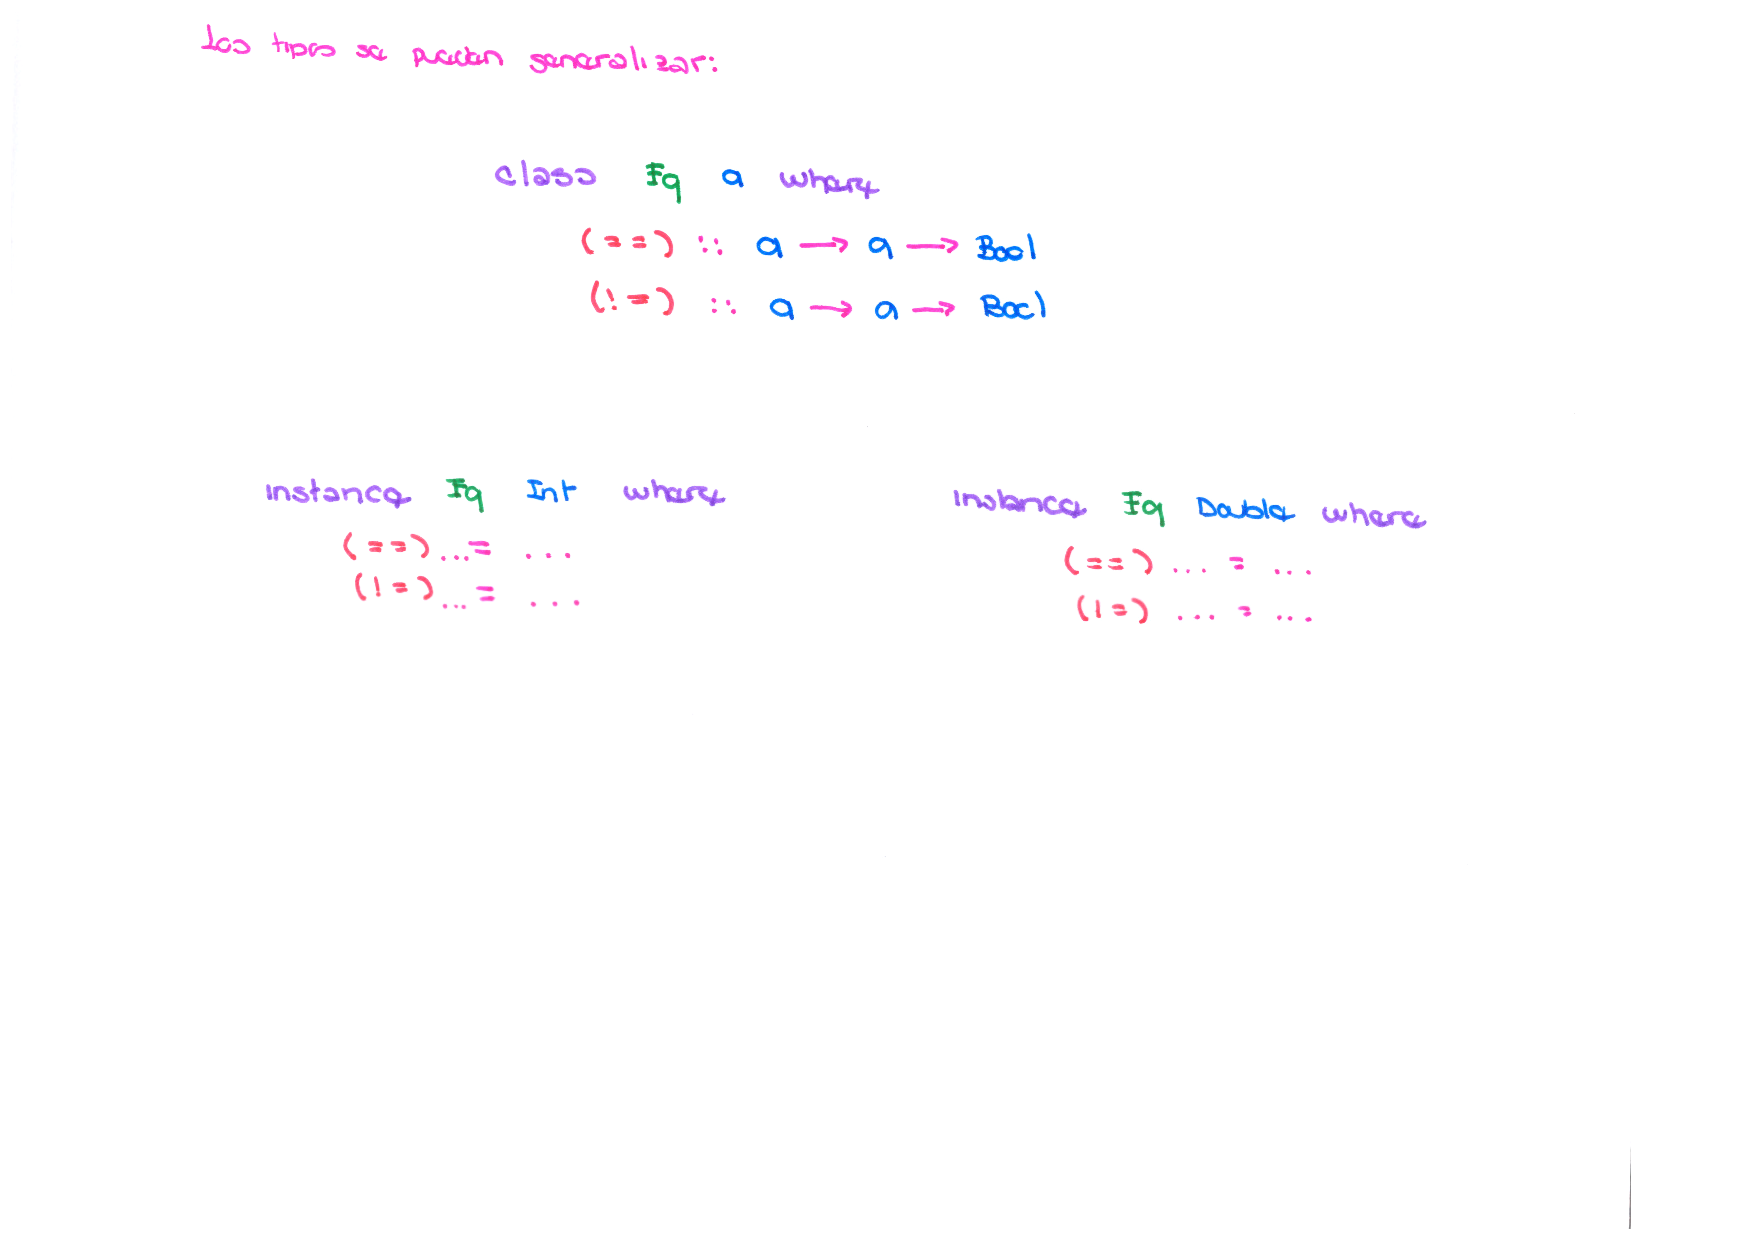 Los tipos se pueden generalizar:
class Eq a where
(==) :: a → a → Bool
(!=) :: a → a → Bool
instance Eq Int where
(==) ... = ...
(!=) ... = ...
instance Eq Double where
(==) ... = ...
(!=) ... = ...